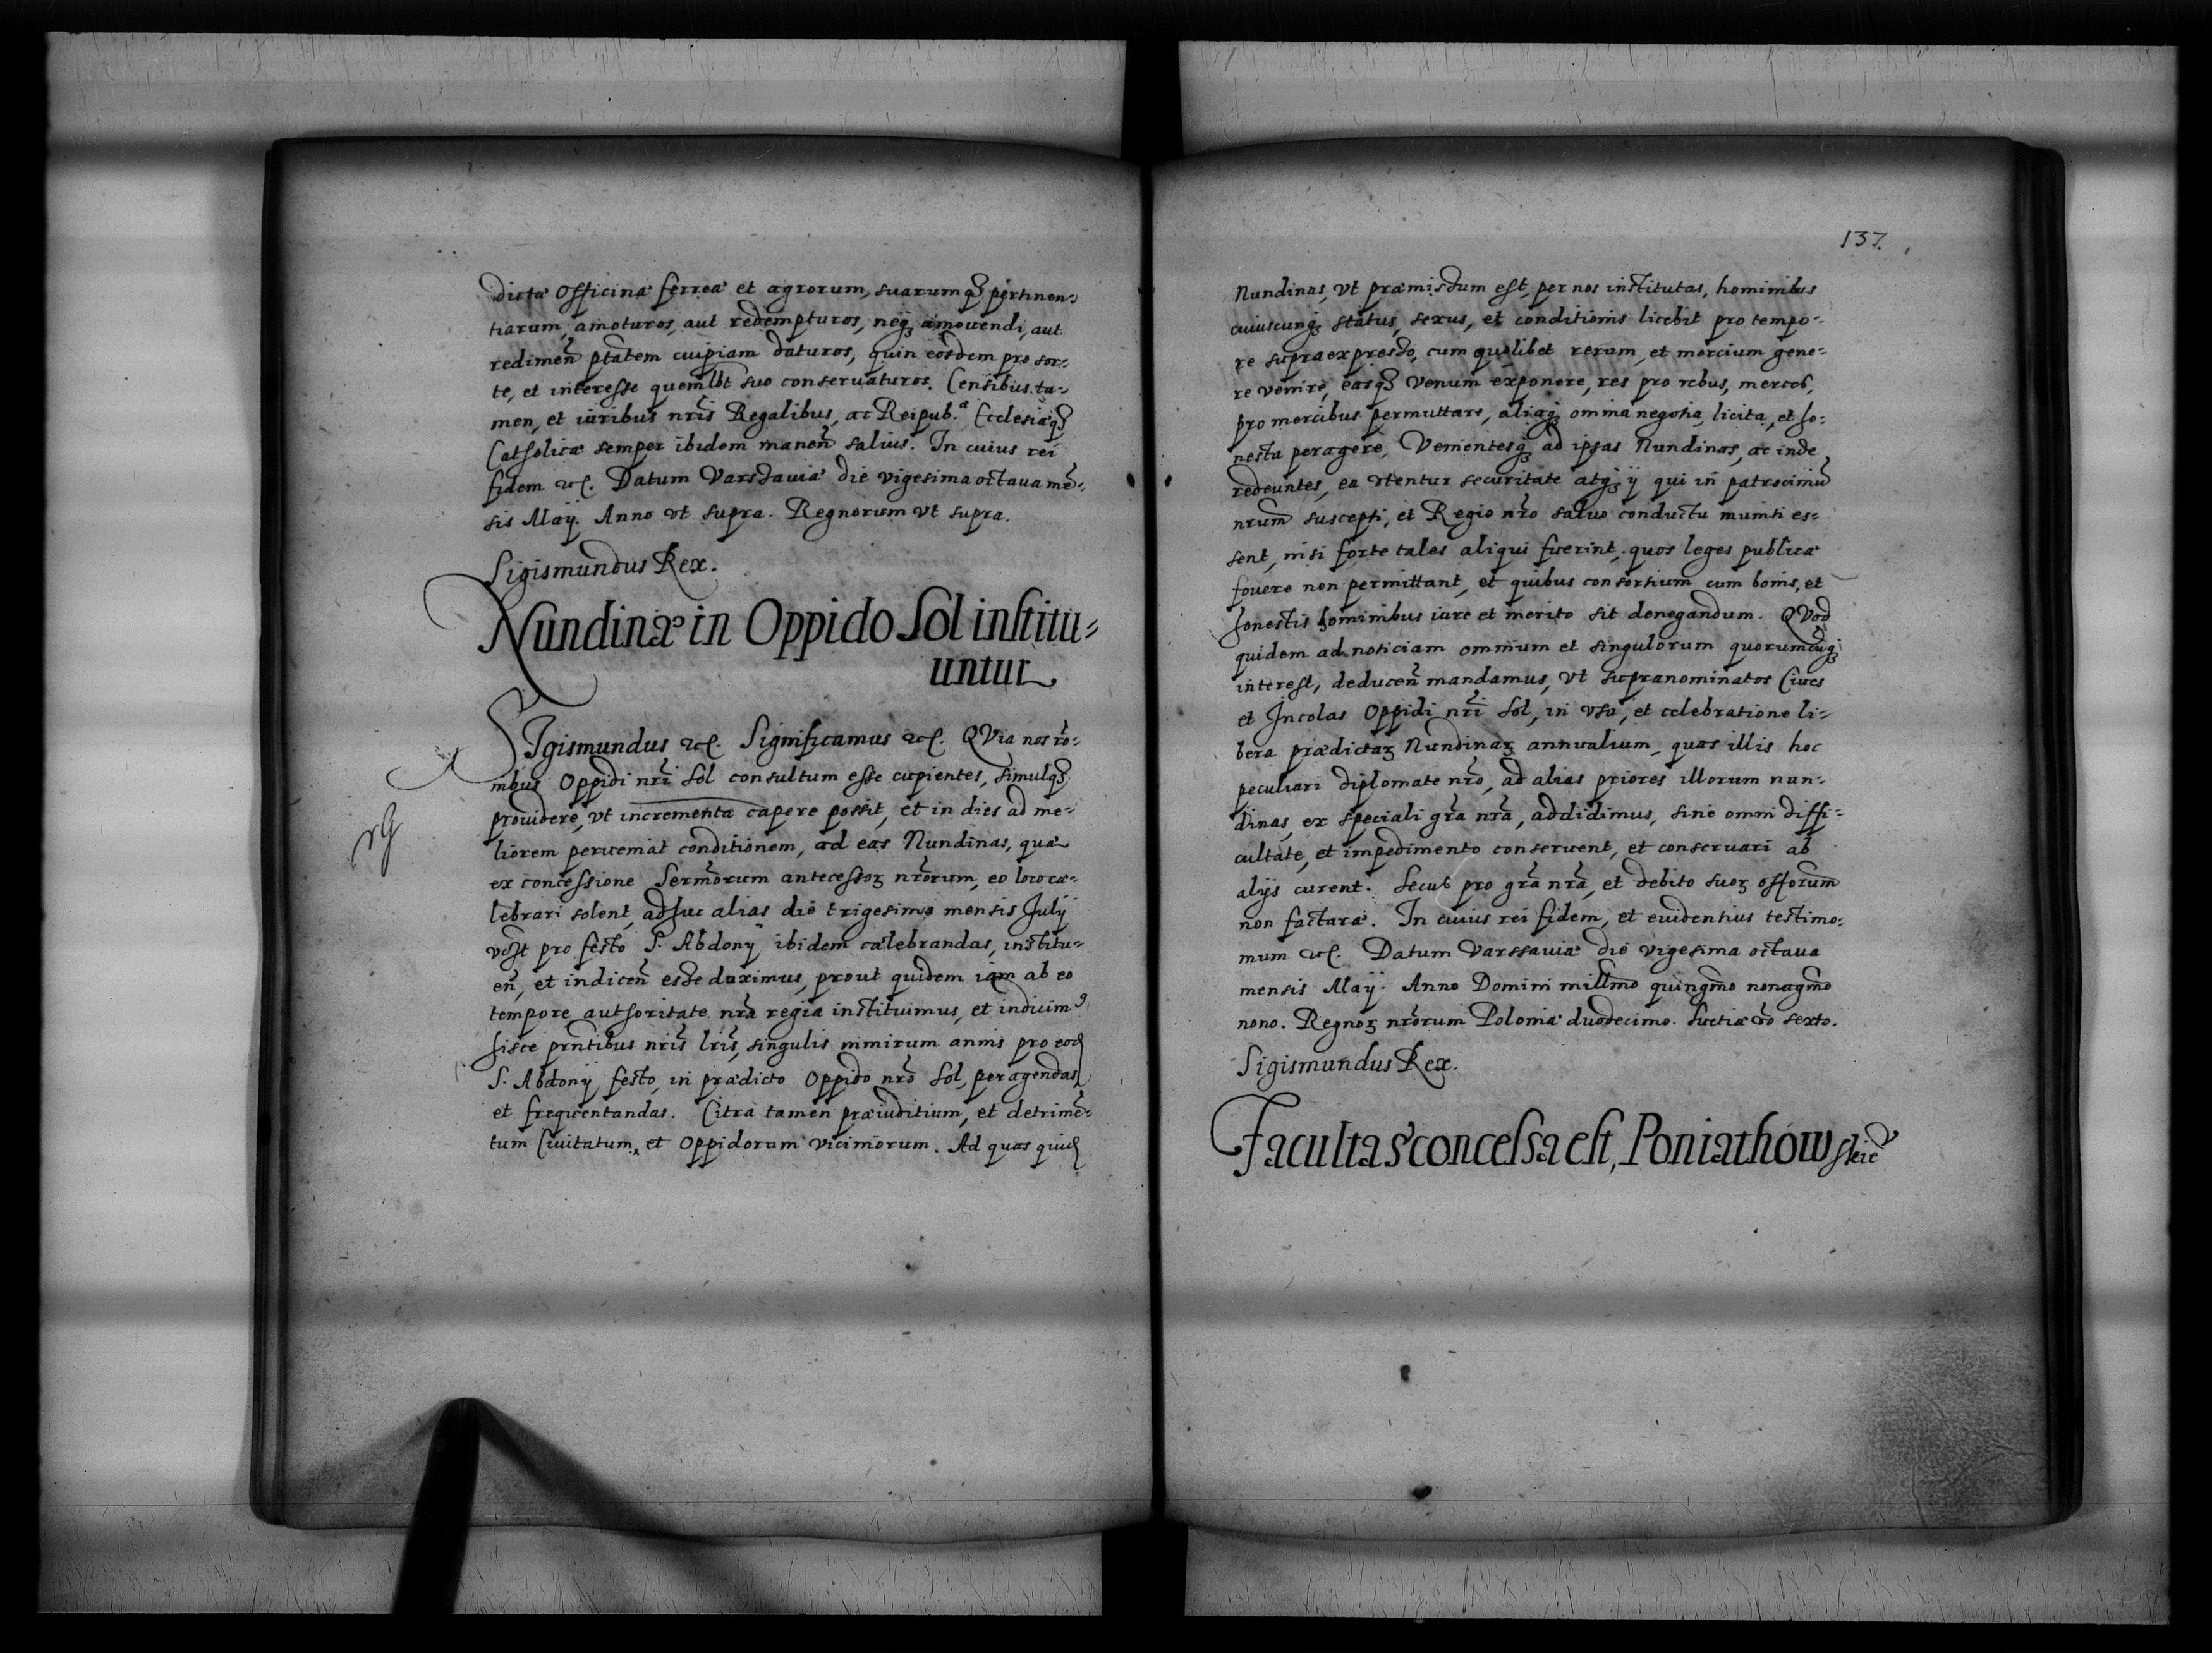 dictæ Officinæ ferreæ et agrorum, suarumq̃ pertinen-
tiarum, amoturos, aut redempturos, neq̃ amouendi, aut
redimen̄ ptatem cuipiam daturos, quin eosdem pro sor-
te, et interesse quemlbt suo conseruaturos. Censibus ta-
men, et iuribus nris Regalibus, ac Reipub.ᵃ Ecclesiæq̃
Catholicæ semper ibidem manen̄ saluis. In cuius rei
fidem etc. Datum Varssauiæ die vigesima octaua mē-
sis Maij. Anno vt supra. Regnorum vt supra.
Sigismundus Rex.
Nundinæ in Oppido Sol institu-
untur
SIgismundus etc. Significamus etc. QVia nos rō-
nibus Oppidi nri Sol consultum esse cupientes, simulq̃
prouidere, vt incrementa capere possit, et in dies ad me-
liorem perueniat conditionem, ad eas Nundinas, quæ
ex concessione Sermorum antecessoꝝ nrorum, eo loco cæ-
lebrari solent, adhuc alias die trigesima mensis Julij
vdſt pro festo S. Abdonij ibidem cælebrandas, institu-
en̄, et indicen̄ esse duximus, prout quidem iam ab eo
tempore authoritate nra regia instituimus, et indicimꝰ
hisce prntibus nris lris, singulis nimirum annis pro eod
S. Abdonij festo, in prædicto Oppido nro Sol, peragendas
et frequentandas. Citra tamen præiuditium, et detrimē-
tum Ciuitatum, et Oppidorum vicinorum. Ad quas quid
137.
Nundinas, vt præmissum est, per nos institutas, hominibus
cuiuscunq̃ status, sexus, et conditionis licebit pro tempo-
re supraexpresso, cum quolibet rerum, et mercium gene-
re venire, easq̃ venum exponere, res pro rebus, merces,
pro mercibus permuttare, aliaq̃ omnia negotia, licita, et ho-
nesta peragere, Venientesq̃ ad ipsas Nundinas, ac inde
redeuntes, ea vtentur securitate atq̃ ij qui in patrociniū
nrum suscepti, et Regio nro saluo conductu muniti es-
sent, nisi forte tales aliqui fuerint, quos leges publicæ
fouere non permittant, et quibus consortium cum bonis, et
honestis hominibus iure et merito sit denegandum. QVod
quidem ad noticiam omnium et singulorum quorumcuq̃
interest, deducen̄ mandamus, vt supranominatos Ciues
et Incolas Oppidi nri Sol, in vsu, et celebratione li-
bera prædictaꝝ Nundinaꝝ annualium, quas illis hoc
peculiari diplomate nro, ad alias priores illorum nun-
dinas, ex speciali gra nra, addidimus, sine omni diffi-
cultate, et impedimento conseruent, et conseruari ab
alijs curent. Secus pro gra nra, et debito suoꝝ offorum
non facturæ. In cuius rei fidem, et euidentius testimo-
nium etc. Datum Varssauiæ die vigesima octaua
mensis Maij. Anno Domini millmo quingmo nonagmo
nono. Regnoꝝ nrorum Poloniæ duodecimo. Suetiæ ro sexto.
Sigismundus Rex.
Facultas concessa est, Poniathowskie